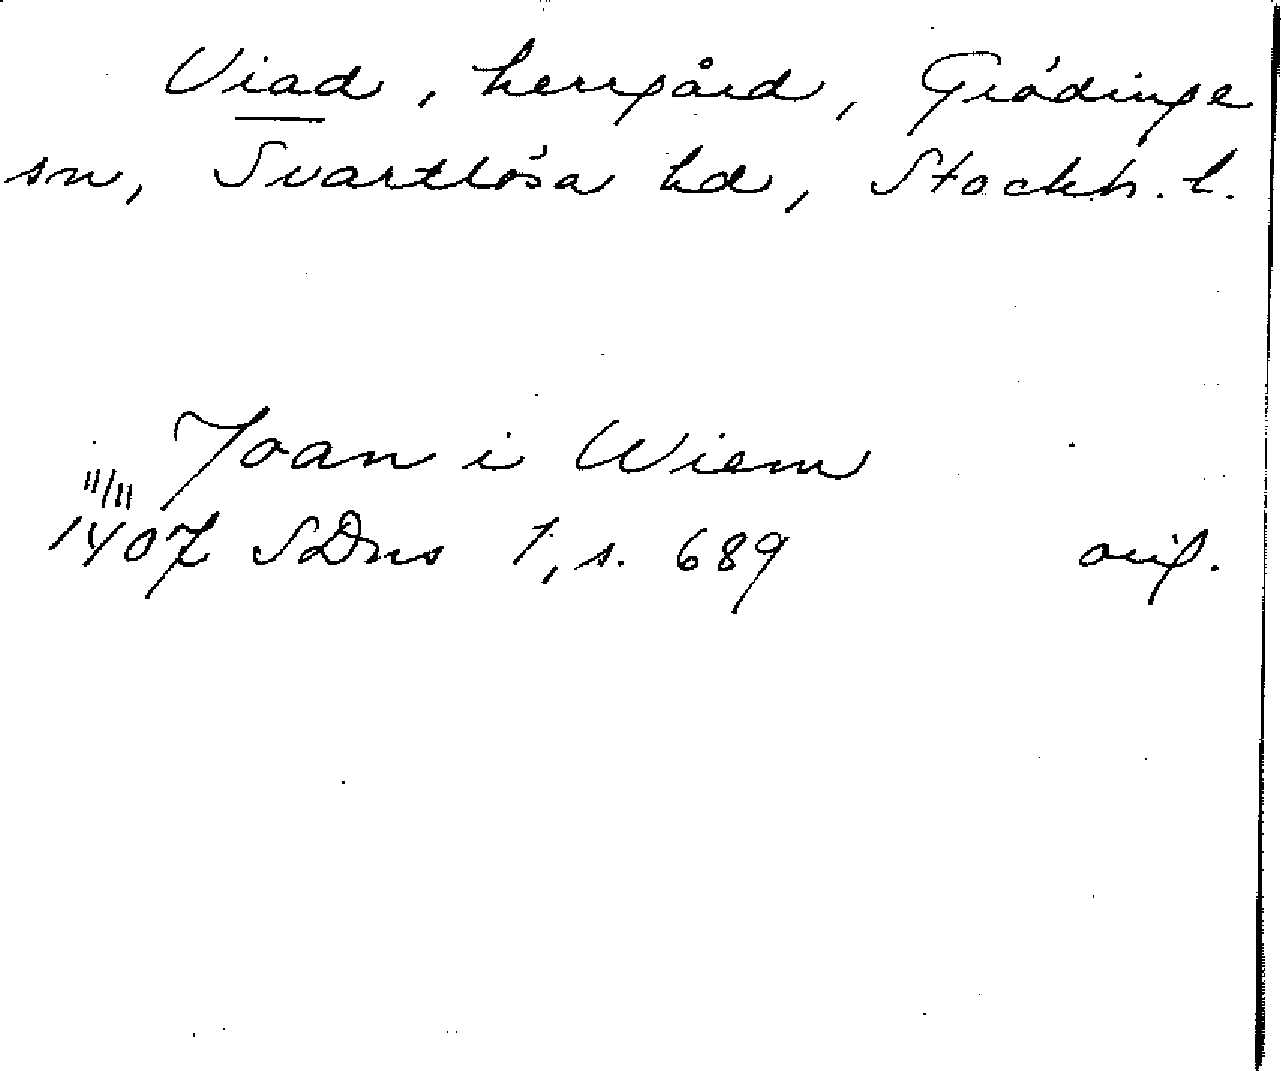 Viad, herrgård, Grödinge
sn, Svartlösa hd, Stockh. l.
Joan i Wiem
11/11
1407 SDns 1, s. 689 orig.